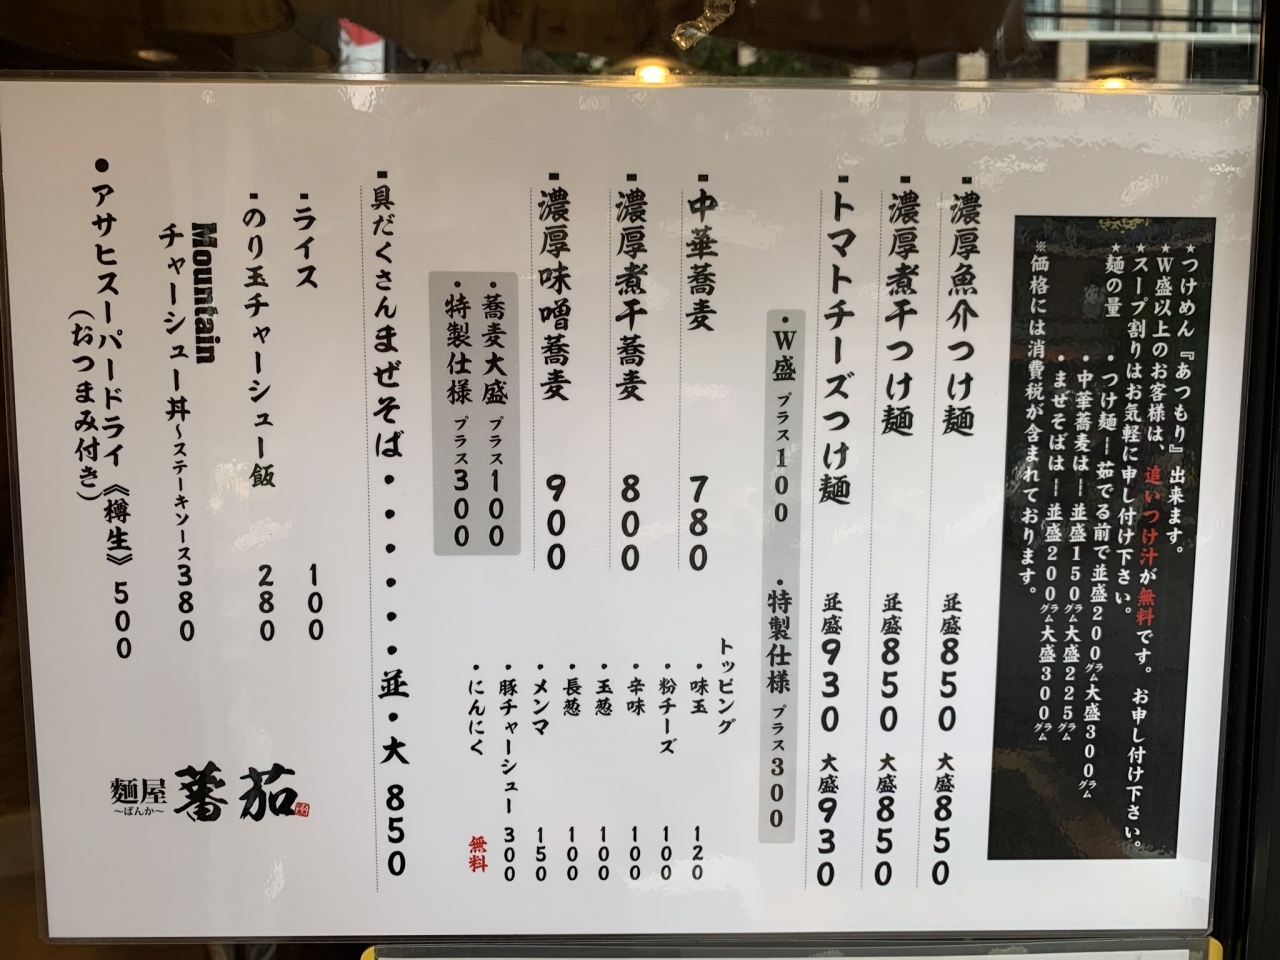 ★つけめん『あつもり』出来ます。
★W盛以上のお客様は、追いつけ汁が無料です。お申し付け下さい。
★スープ割りはお気軽に申し付け下さい。
★麺の量
・つけ麺―茹でる前で並盛200グラム大盛300グラム
・中華蕎麦は―並盛150グラム大盛225グラム
・まぜそばは―並盛200グラム大盛300グラム
※価格には消費税が含まれております。
濃厚魚介つけ麺 並盛850 大盛850
濃厚煮干つけ麺 並盛850 大盛850
トマトチーズつけ麺 並盛930 大盛930
・W盛 プラス100 ・特製仕様 プラス300
中華蕎麦 780
濃厚煮干蕎麦 800
濃厚味噌蕎麦 900
・蕎麦大盛 プラス100
・特製仕様 プラス300
トッピング
・味玉 120
・粉チーズ 100
・辛味 100
・玉葱 100
・長葱 100
・メンマ 150
・豚チャーシュー 300
・にんにく 無料
具だくさんまぜそば・・・・・・並・大 850
ライス 100
のり玉チャーシュー飯 280
Mountain
チャーシュー丼~ステーキソース380
●アサヒスーパードライ《樽生》500
(おつまみ付き)
麺屋 蕃茄
~ばんか~